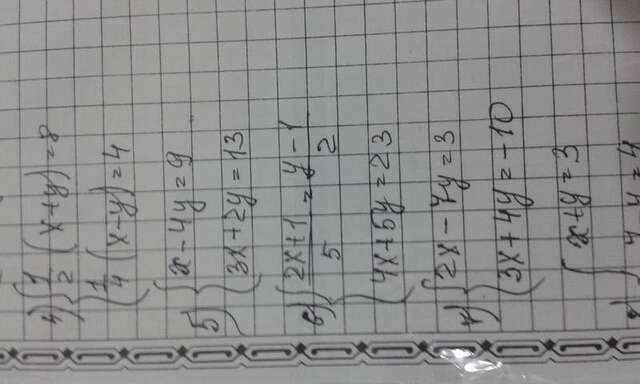 4) { 1/2 (x+y)=8
{ 1/4 (x-y)=4
5) { x-4y=9
{ 3x+2y=13
6) { (2x+1)/5 = (y-1)/2
{ 4x+5y=23
7) { 2x-7y=3
{ 3x+4y=-10
{ x+y=3